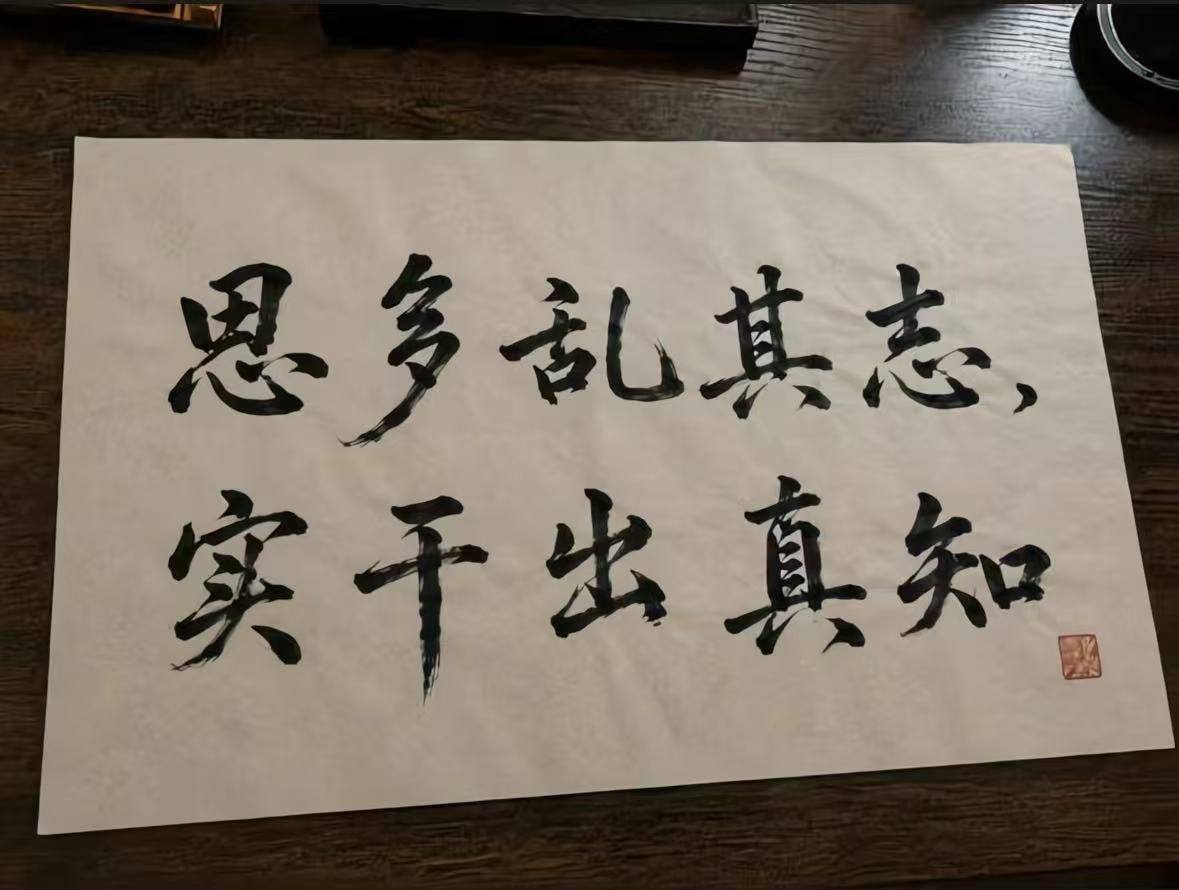 恩多乱其志、
实干出真知